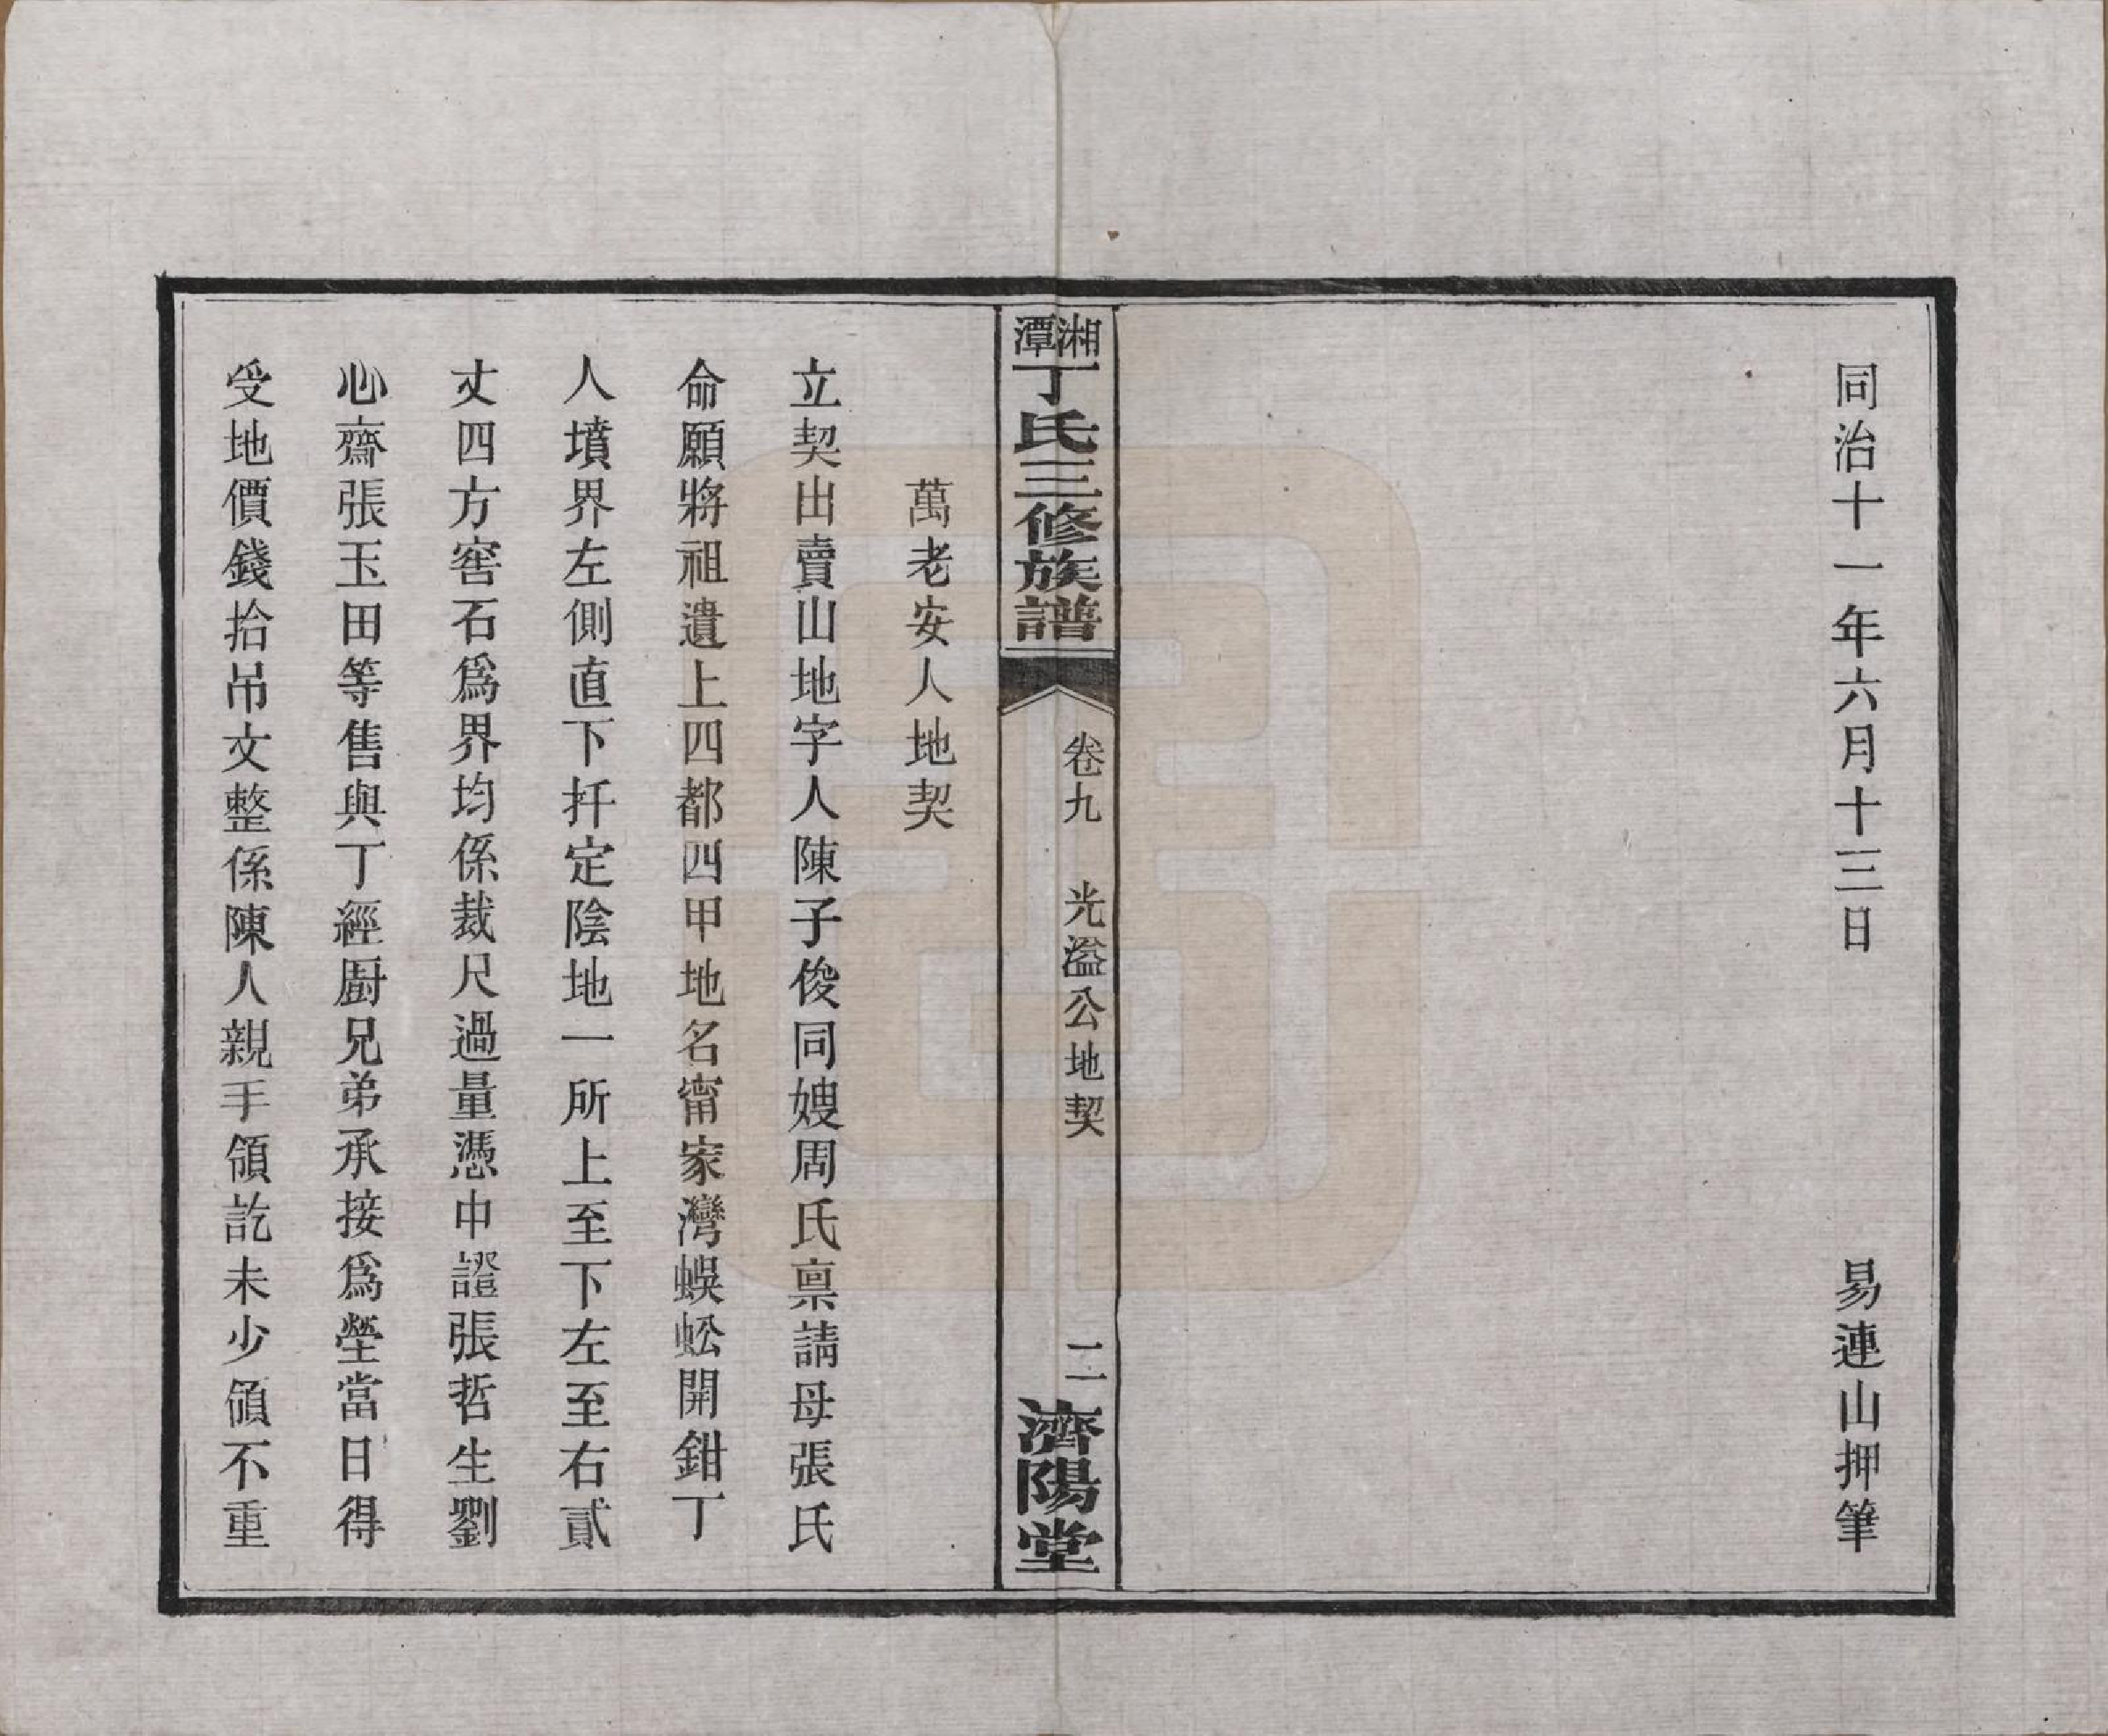 同治十一年六月十三日　易連山押筆
湘潭丁氏三修族譜　卷九　光溢公地契　二　濟陽堂
萬老安人地契
立契出賣山地字人陳子俊同嫂周氏禀請母張氏
命願將祖遺上四都四甲地名甯家灣蜈蚣開鉗丁
人墳界左側直下扦定陰地一所上至下左至右貳
丈四方窖石爲界均係裁尺過量憑中證張哲生劉
心齋張玉田等售與丁經厨兄弟承接爲塋當日得
受地價錢拾吊文整係陳人親手領訖未少領不重